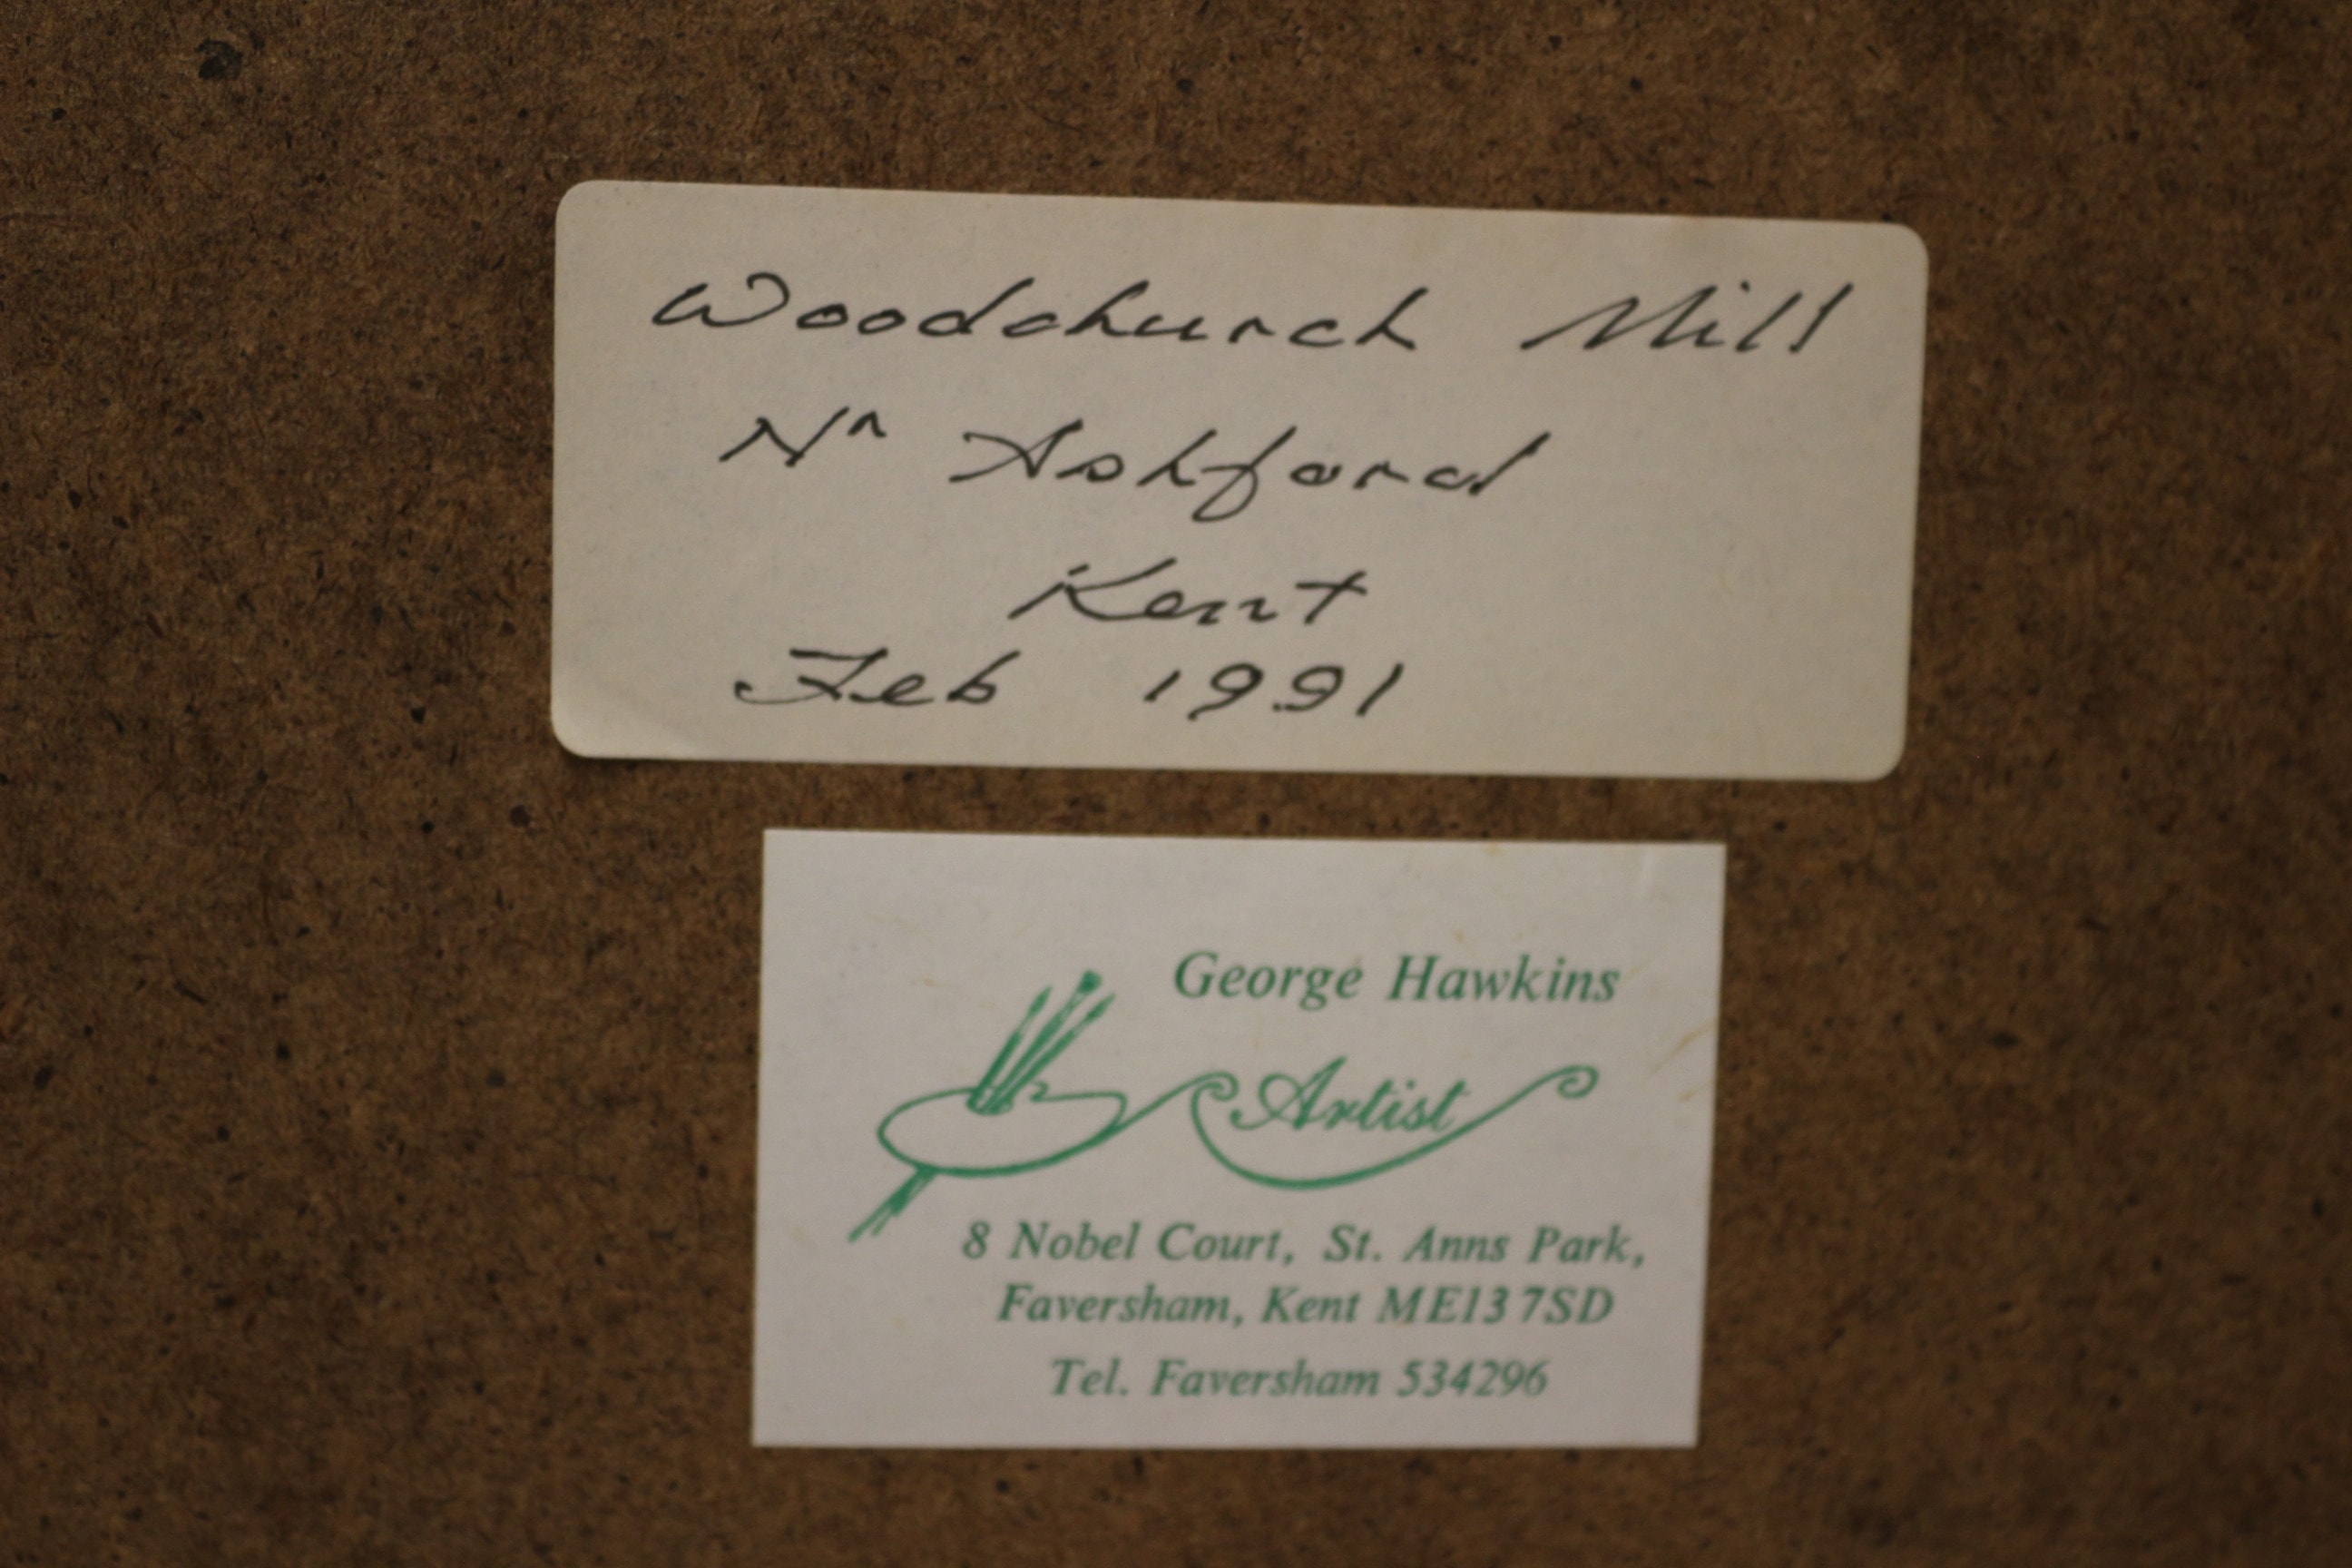 Woodchurch Mill
Nr Ashford
Kent
Feb 1991
George Hawkins
Artist
8 Nobel Court, St. Anns Park,
Faversham, Kent ME13 7SD
Tel. Faversham 534296